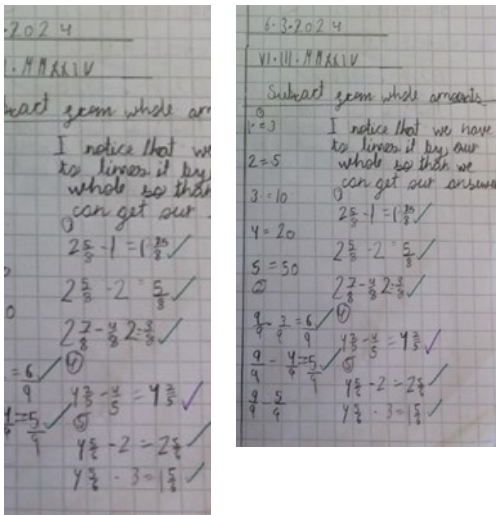 .2024
I.MMXXIV
ract from whole am
I notice that we
to times it by
whole so than
can get our
2 5/8 - 1 = 1
2 5/8 - 2 = 5/8
2 7/8 - 4/8 2 3/8
= 6/9
4
= 5/9
5
4 5/6 - 2 = 2 5/6
4 5/6 - 3 = 1 5/6
6.3.2024
VI.III.MMXXIV
Subract from whole amounts
1. = 3
I notice that we have
to times it by our
2 = 5
whole so than we
can get our answer
3 = 10
2 5/8 - 1 = 1
4 = 20
2 5/8 - 2 = 5/8
5 = 50
2 7/8 - 4/8 2 3/8
2
9/9 - 3/9 = 6/9
4
9/9 - 4/9 = 5/9
4 5/6 - 2 = 2 5/6
9/9 - 5/9
4 5/6 - 3 = 1 5/6